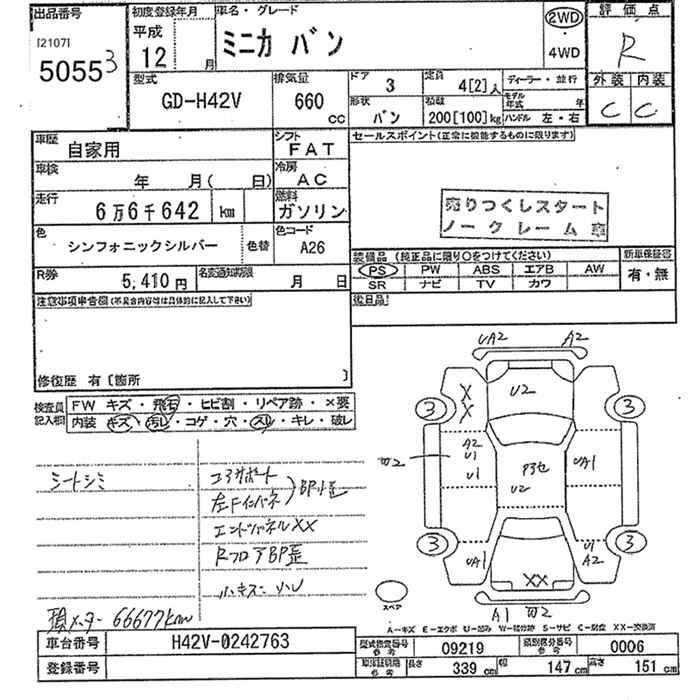 出品番号
[21071
5055 3
初度登録年月
平成
12
月
車名・グレード
ミニカ バン
2WD
・
4WD
評価点
R
型式
GD-H42V
排気量
660
cc
ドア
3
定員
4[2]人
ディーラー・並行
形状
バン
積載
200[100]kg
モデル年式
年
ハンドル 左・右
外装 内装
C C
車歴
自家用
シフト
FAT
セールスポイント(正常に機能するものに限ります)
車検
年 月( 日)
冷房
AC
走行
6万6千642 km
燃料
ガソリン
売りつくしスタート
ノークレーム
色
シンフォニックシルバー
色替
色コード
A26
装備品 (純正品に限り○をつけてください)
PS PW ABS エアB AW
SR ナビ TV カワ
新車保証書
有・無
R券
5,410円
名変通知期限
月 日
後日品
注意事項申告欄(不具合内容等は具体的に記入して下さい)
修復歴 有〔箇所 〕
検査員記入欄
FW キズ・飛石・ヒビ割・リペア跡・×要
内装 キズ・汚レ・コゲ・穴・スレ・キレ・破レ
シートシミ
コアサポート
左Fインパネ
BP小歪
エンドパネルXX
RフロアBP歪
小キズ・凹
現メーター 66677km
UA2
A2
X
X
U2
3
3
A2
U1
U1
W2
P3セ
U2
UA1
3
3
UA1
U1
A2
XX
A1 W2
スペア
A-キズ E-エクボ U-凹み W-補修跡 S-サビ C-腐食 XX-交換済
車台番号
H42V-0242763
型式指定番号
参考
09219
類別区分番号
参考
0006
登録番号
車検証明細
参考
長さ
339 cm
幅
147 cm
高さ
151 cm